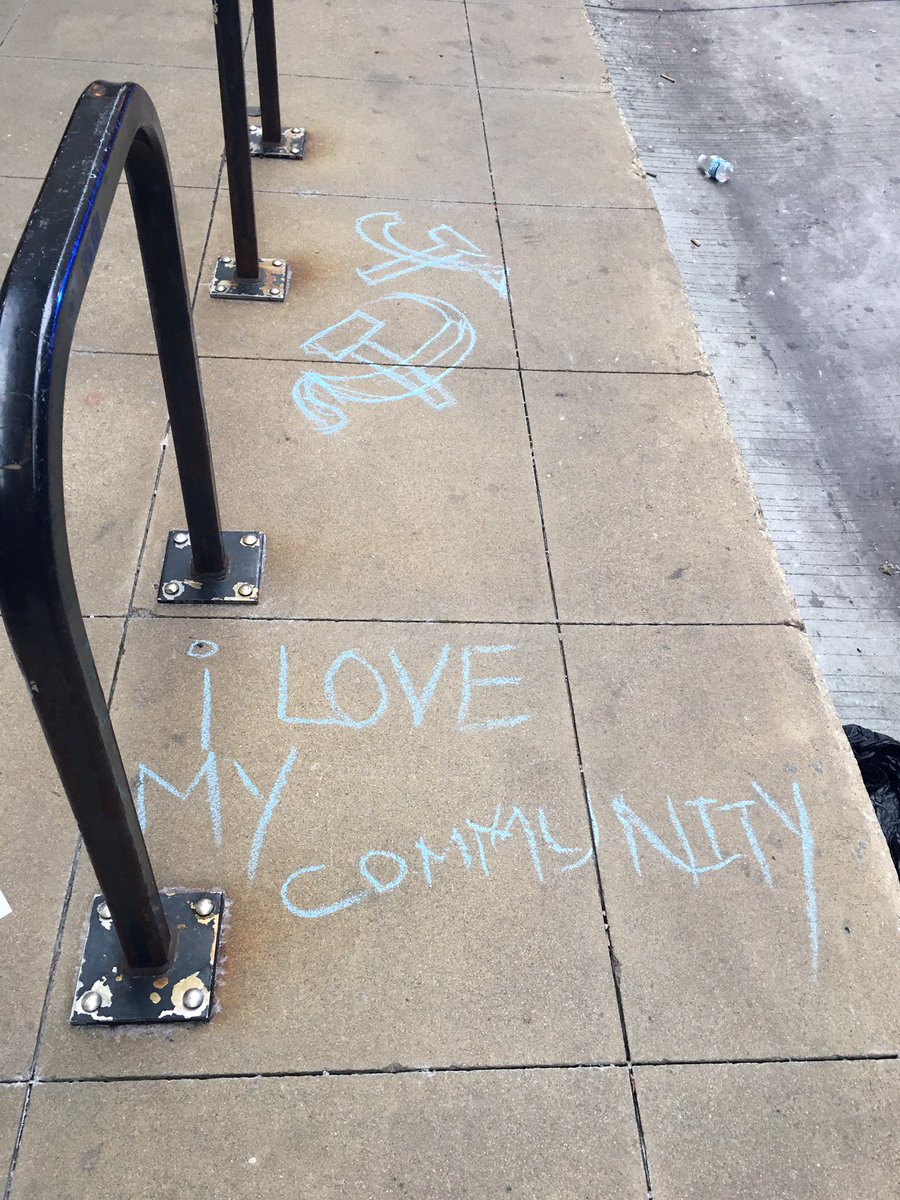 i LOVE
MY
COMMUNITY